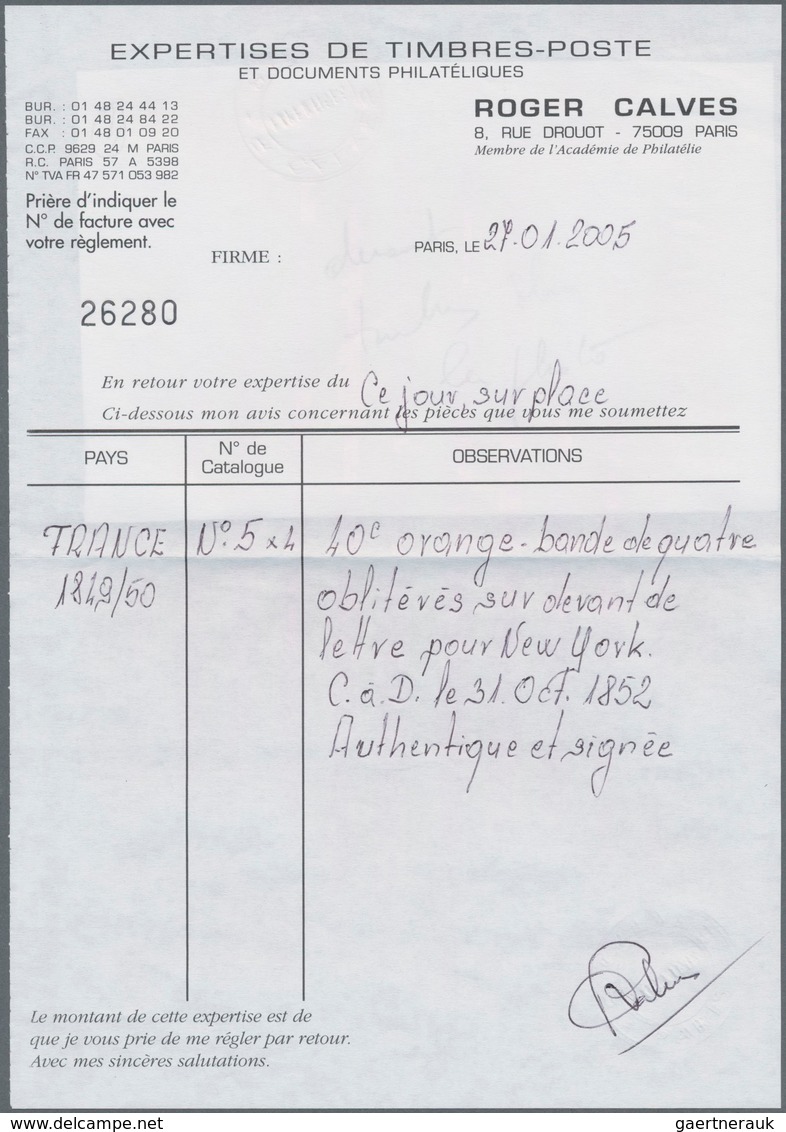 EXPERTISES DE TIMBRES-POSTE
ET DOCUMENTS PHILATÉLIQUES
BUR. : 01 48 24 44 13
BUR. : 01 48 24 84 22
FAX : 01 48 01 09 20
C.C.P. 9629 24 M PARIS
R.C. PARIS 57 A 5398
N° TVA FR 47 571 053 982
ROGER CALVES
8, RUE DROUOT - 75009 PARIS
Membre de l'Académie de Philatélie
Prière d'indiquer le
N° de facture avec
votre règlement.
FIRME :
PARIS, LE 27.01.2005
26280
En retour votre expertise du Ce jour, sur place
Ci-dessous mon avis concernant les pièces que vous me soumettez
PAYS
N° de
Catalogue
OBSERVATIONS
FRANCE
1849/50
N°.5 x 4
40c orange - bande de quatre
oblitérés sur devant de
lettre pour New York.
C.à.D. le 31. Oct. 1852
Authentique et signée
Le montant de cette expertise est de
que je vous prie de me régler par retour.
Avec mes sincères salutations.
gaertnerauk